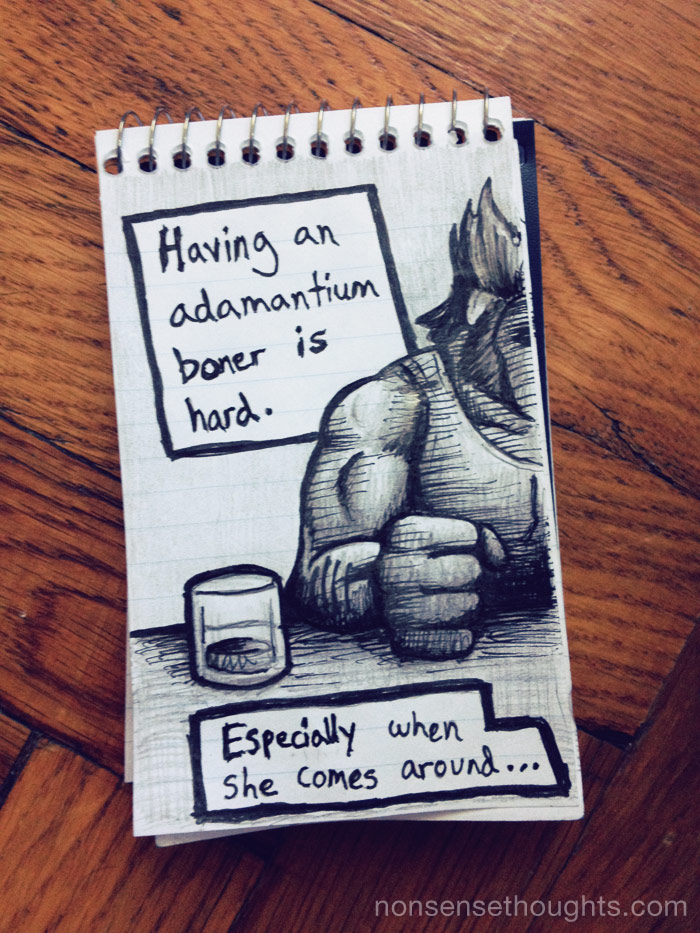 Having an
adamantium
boner is
hard.
Especially when
she comes around...
nonsensethoughts.com